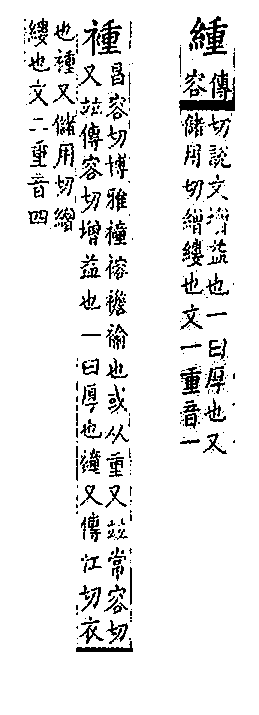 緟
傳
容
切說文增益也一曰厚也又
儲用切繒縷也文一重音一
褈
昌容切博雅𧝎褣襜褕也或从重又竝常容切
又竝傳容切增益也一曰厚也𧝎又傳江切衣
也褈又儲用切繒
縷也文二重音四